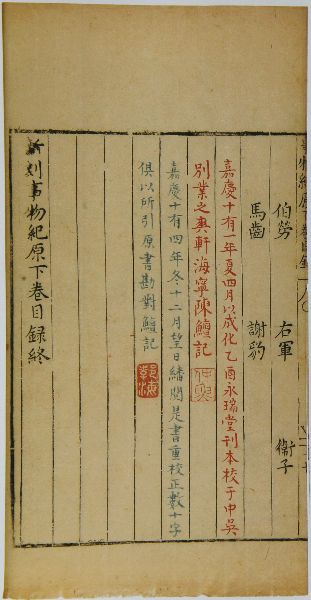 事物紀原下卷目錄
伯勞 右軍 衞子
馬齒 謝豹
嘉慶十有一年夏四月以成化乙酉永瑞堂刊本校于中吳
別業之奥軒海寧陳鱣記 仲魚
嘉慶十有四年冬十二月望日繙閱是書重校正數十字
俱以所引原書勘對鱣記
新刻事物紀原下卷目錄終